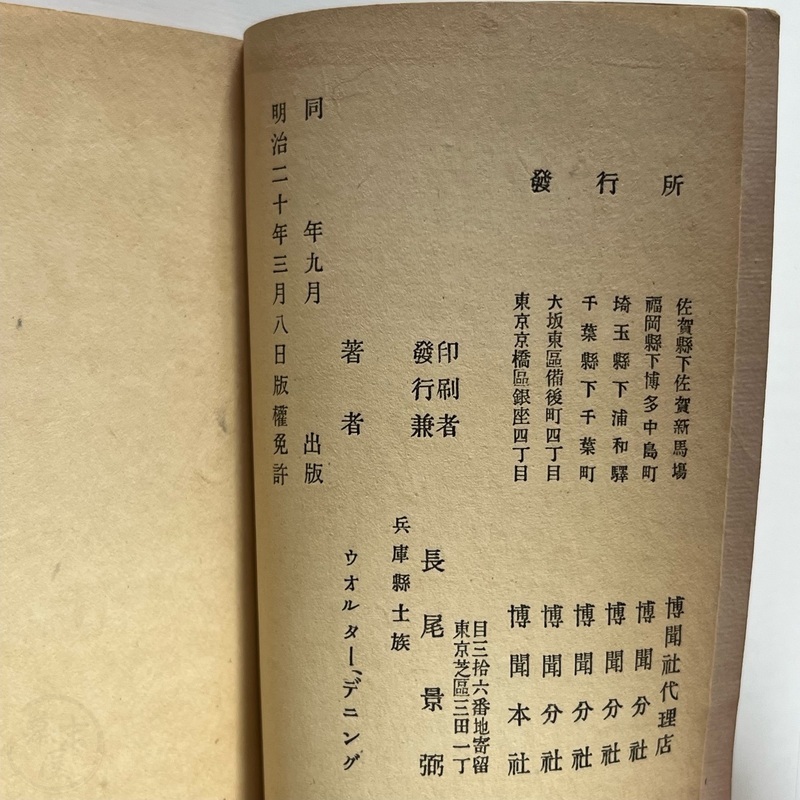 明治二十年三月八日版權免許
同年九月出版
著者 ウオルター、デニング
兵庫縣士族
發行兼
印刷者
長尾景弼
東京芝區三田一丁
目三拾六番地寄留
發行所
東京京橋區銀座四丁目 博聞本社
大坂東區備後町四丁目 博聞分社
千葉縣下千葉町 博聞分社
埼玉縣下浦和驛 博聞分社
福岡縣下博多中島町 博聞分社
佐賀縣下佐賀新馬場 博聞社代理店